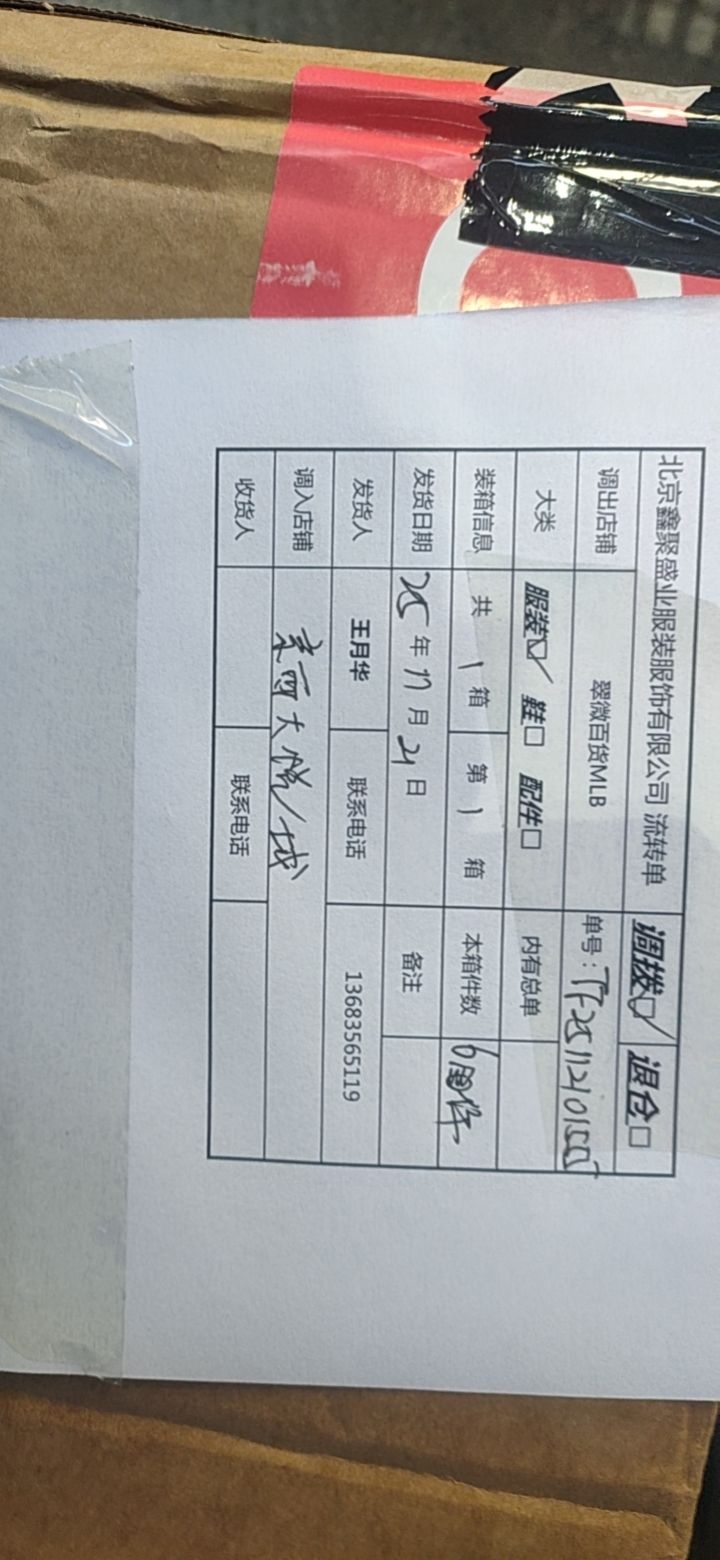 北京鑫聚盛业服装服饰有限公司 流转单 调拨☑ 退仓□
调出店铺 翠微百货MLB 单号：TF2511210155
大类 服装☑ 鞋□ 配件□ 内有总单
装箱信息 共 1 箱 第 1 箱 本箱件数 6件
发货日期 25 年 11 月 21 日 备注
发货人 王月华 联系电话 13683565119
调入店铺 京西大悦城
收货人 联系电话